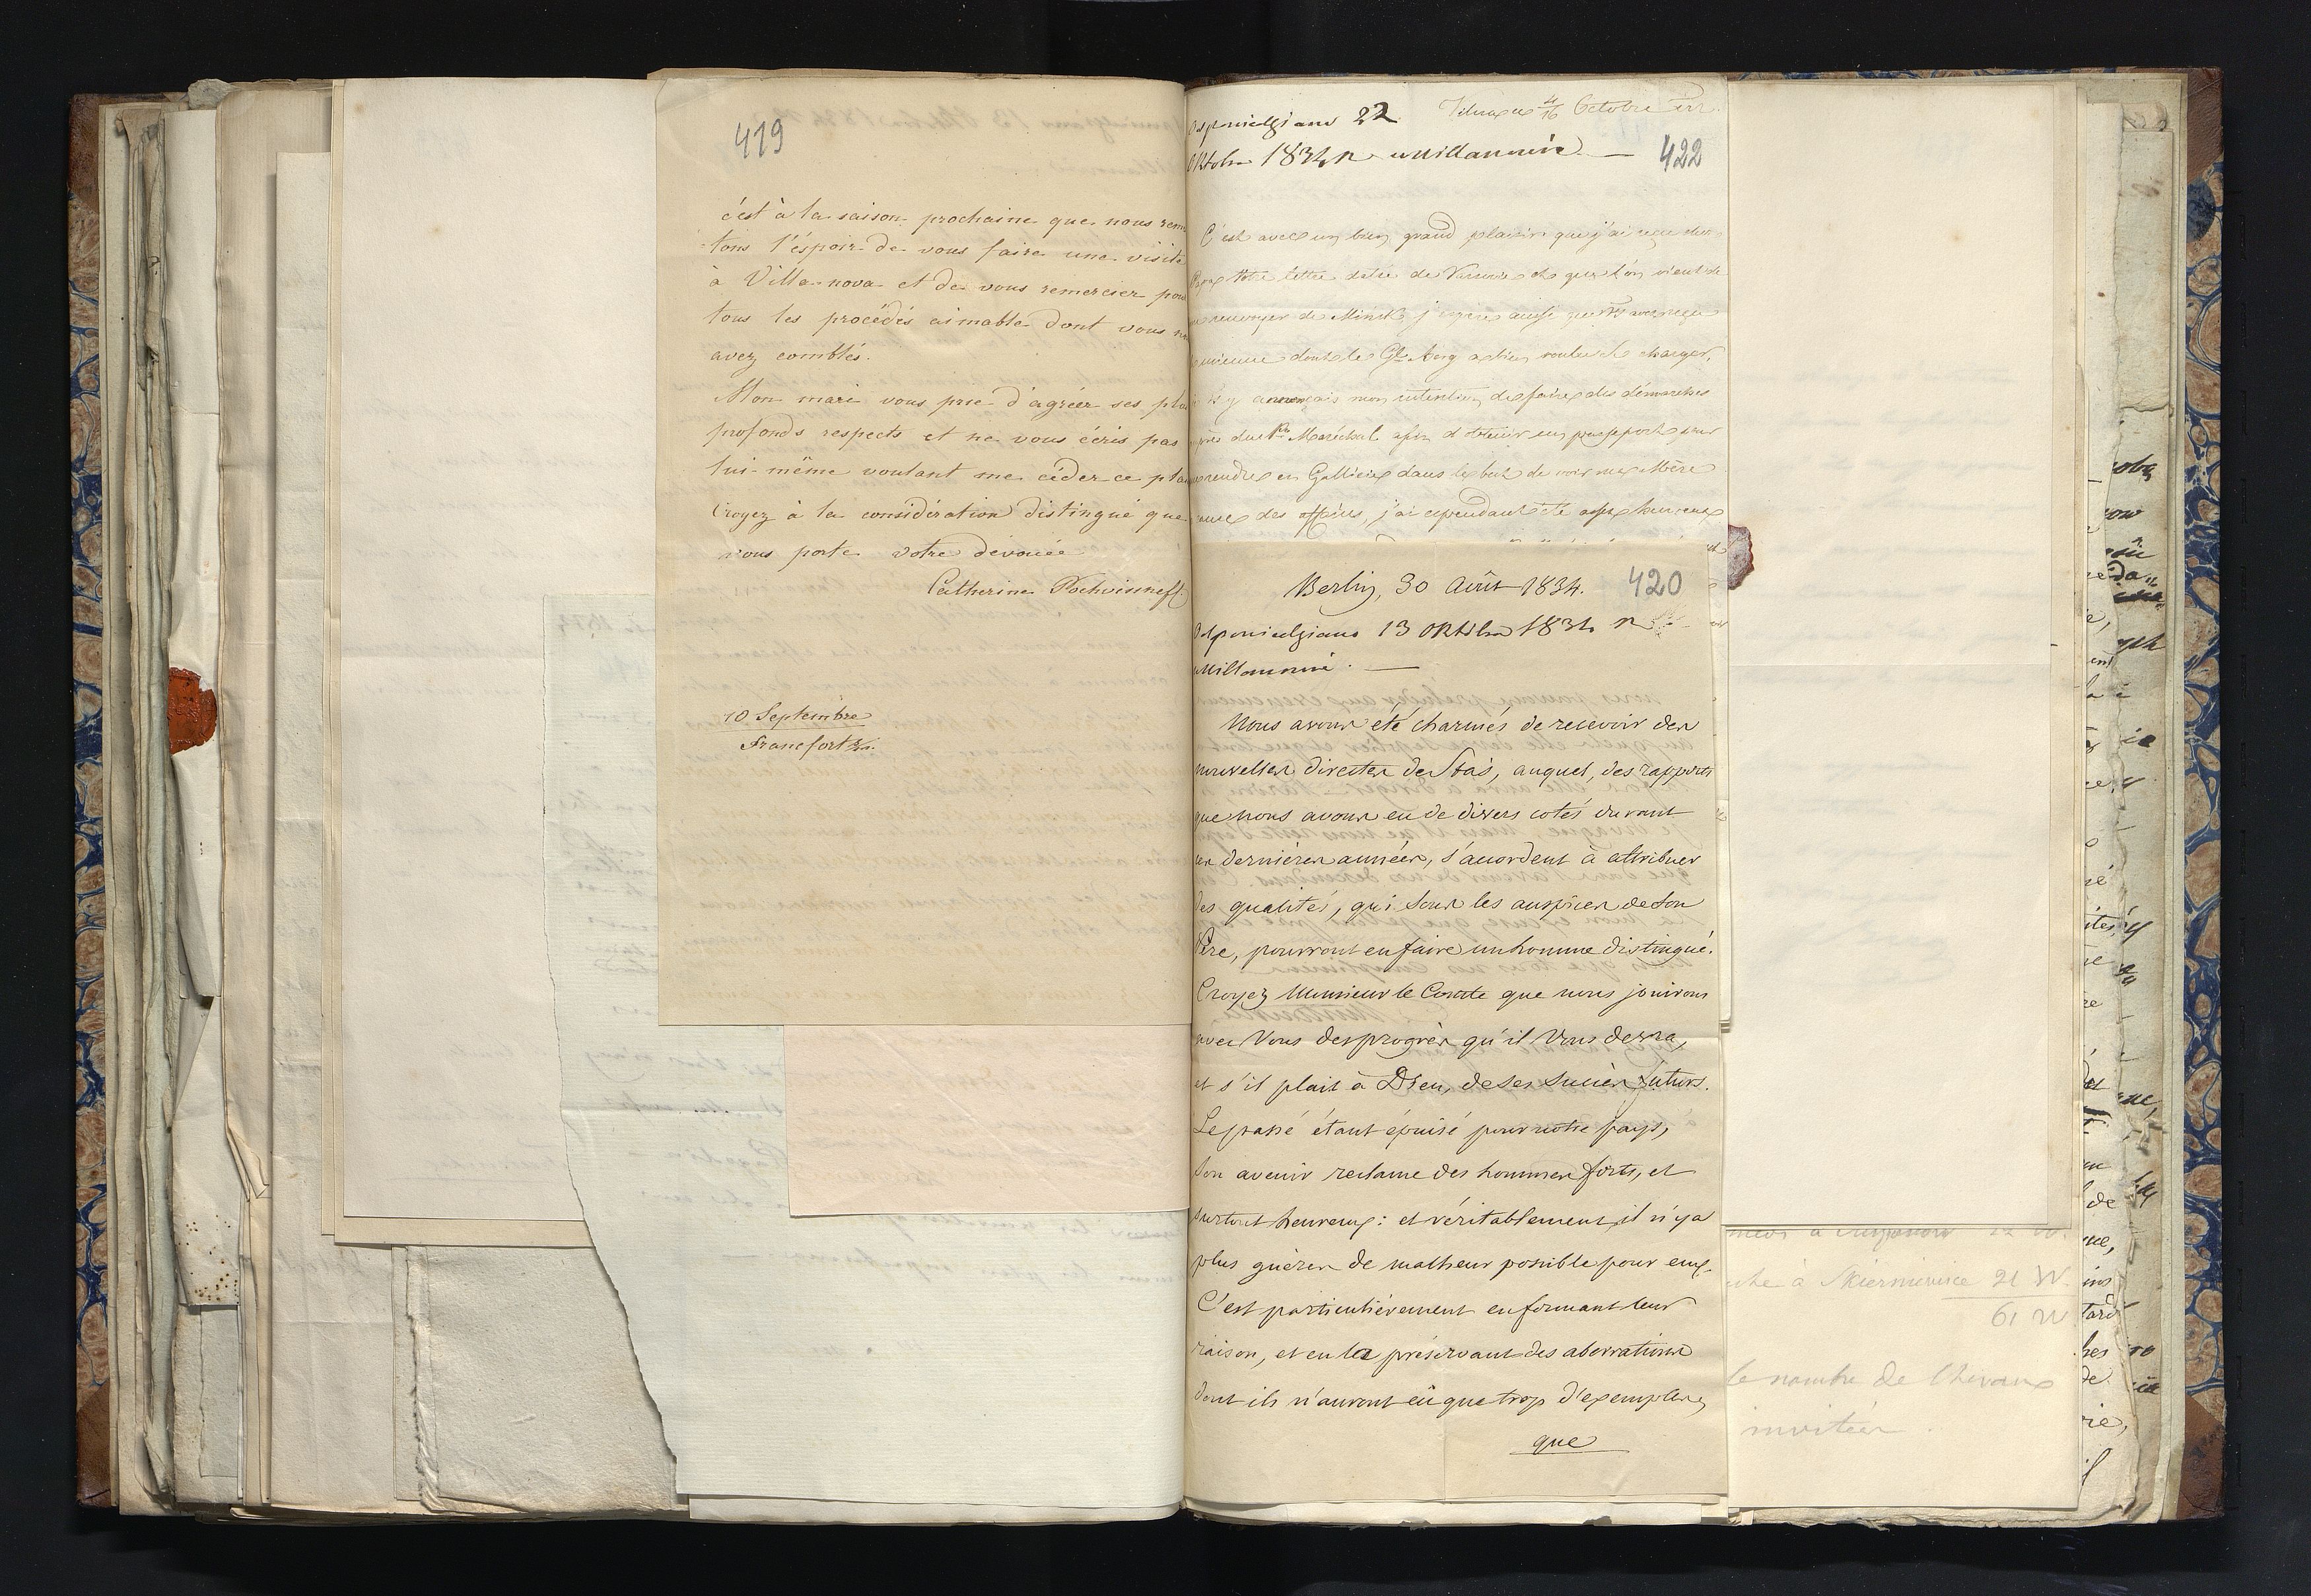 419
c'est à la saison prochaine que nous rem
tons l'éspoir de vous faire une visite
à Villa-nova et de vous remercier pour
tous les procédés aimable dont vous n
avez comblés.
Mon mari vous prie d'agréer ses plu
profonds respects et ne vous écris pas
lui-même voulant me céder ce pla
Croyez à la considération distingué que
vous porte votre dévouée
Catherine
10 Septembre
Francfort
Odpowiedziano 22 Octobre
Oktobra 1834 R w Willanowie — 422
C'est avec un bien grand plaisir que j'ai reçu
Papa Votre lettre datée de Varsovie et que l'on vient de
renvoyer de Minsk j'espère aussi que Vs avez reçu
mienne dont le Gl Berg a bien voulu se charger,
Vs y annonçais mon intention de faire des démarches
près du Pce Maréchal afin d'obtenir un passeport pour
rendre en Gallicie dans le but de voir ma Mère
cause des affaires, j'ai cependant été assez heureux
Berlin, 30 Août 1834. 420
Odpowiedziano 13 Oktobra 1834 R
w Willanowie. —
Nous avons été charmés de recevoir des
nouvelles directes de Stas, auquel, des rapports
que nous avons eu de divers cotés durant
ces dernières années, s'accordent à attribuer
des qualités, qui sous les auspices de son
Père, pourront en faire un homme distingué.
Croyez Monsieur le Comte que nous jouirons
avec Vous des progrès qu'il Vous devra,
et s'il plait à Dieu, de ses succès futurs.
Le passé étant épuisé pour notre pays,
son avenir reclame des hommes forts, et
surtout heureux: et véritablement, il n'y a
plus guères de malheur possible pour eux.
C'est particulièrement en formant leur
raison, et en la préservant des aberrations
dont ils n'auront eû que trop d'exemples,
que
à Skierniewice 21 W.
61 W
le nombre de Chevaux
invitées